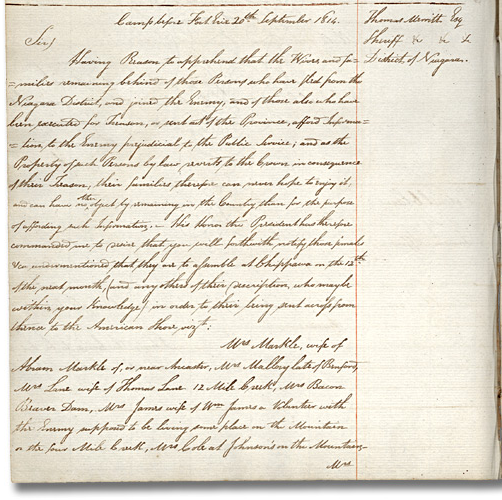 Camp before Fort Erie 20th September 1814.
Thomas Merritt Esq
Sheriff &c &c &c
District of Niagara.
Sir,
Having Reason to apprehend that the Wives and fa=
=milies remaining behind of those Persons who have fled from the
Niagara District, and joined the Enemy, and of those also who have
been executed for Treason, or sent out of the Province, afford Informa=
=tion, to the Enemy prejudicial to the Public Service; and as the
Property of such Persons by law, reverts, to the Crown in consequence
of their Treason, their families therefore can never hope to enjoy it,
and can have no other object by remaining in the Country than for the purpose
of affording such Information. – His Honor the President has therefore
commanded me to desire that you will forthwith, notify those females
&ca undermentioned that they are to assemble at Chippawa on the 12th
of the next month, (and any others of their description, who may be
within your Knowledge) in order to their being sent across from
thence to the American Shore, vizt:
Mrs Markle, wife of
Abram Markle of, or near Ancaster, Mrs Mallory late of Burford,
Mrs Lane wife of Thomas Lane 12 Mile Creek, Mrs Beacon
Beaver Dam, Mrs James wife of Wm James a Volunteer with
the Enemy supposed to be living some place on the Mountain
or the four Mile Creek, Mrs Cole at Johnson's on the Mountain,
Mrs